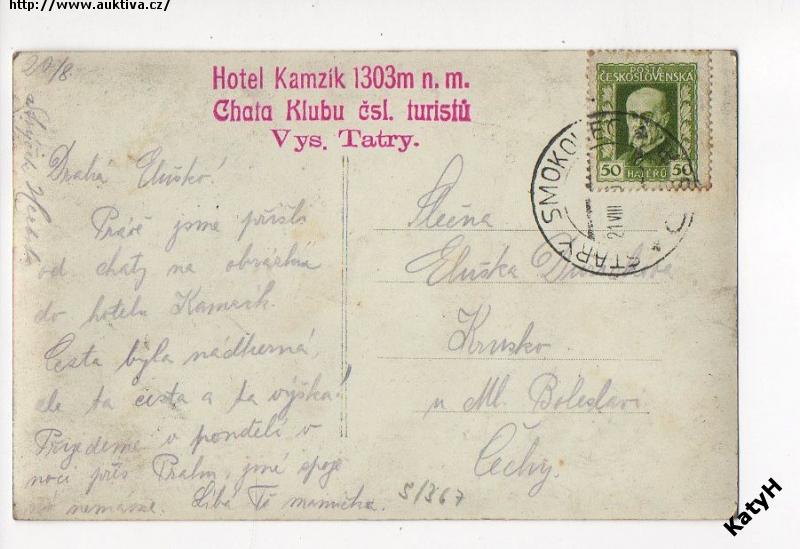 http://www.auktiva.cz/
20/8
Hotel Kamzík 1303m n. m.
Chata Klubu čsl. turistů
Vys. Tatry.
POŠTA
ČESKOSLOVENSKÁ
50 HALÉŘŮ 50
STARÝ SMOKOVEC
21 VIII
Drahá Eluško!
Právě jsme přišli
od chaty na obrázku
do hotelu Kamzík.
Cesta byla nádherná,
ale ta cesta a ta výška!
Přijedeme v pondělí v
noci přes Prahu, jiné spoje
nemáme. Líbá Tě maminka.
Slečna
Eluška
Krnsko
u Ml. Boleslavi
Čechy.
S/367
KatyH